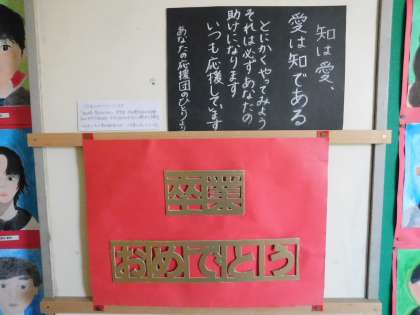 知は愛、
愛は知である
とにかくやってみよう
それは必ずあなたの
助けになります
いつも応援しています
あなたの応援団のひとりより
卒業
おめでとう